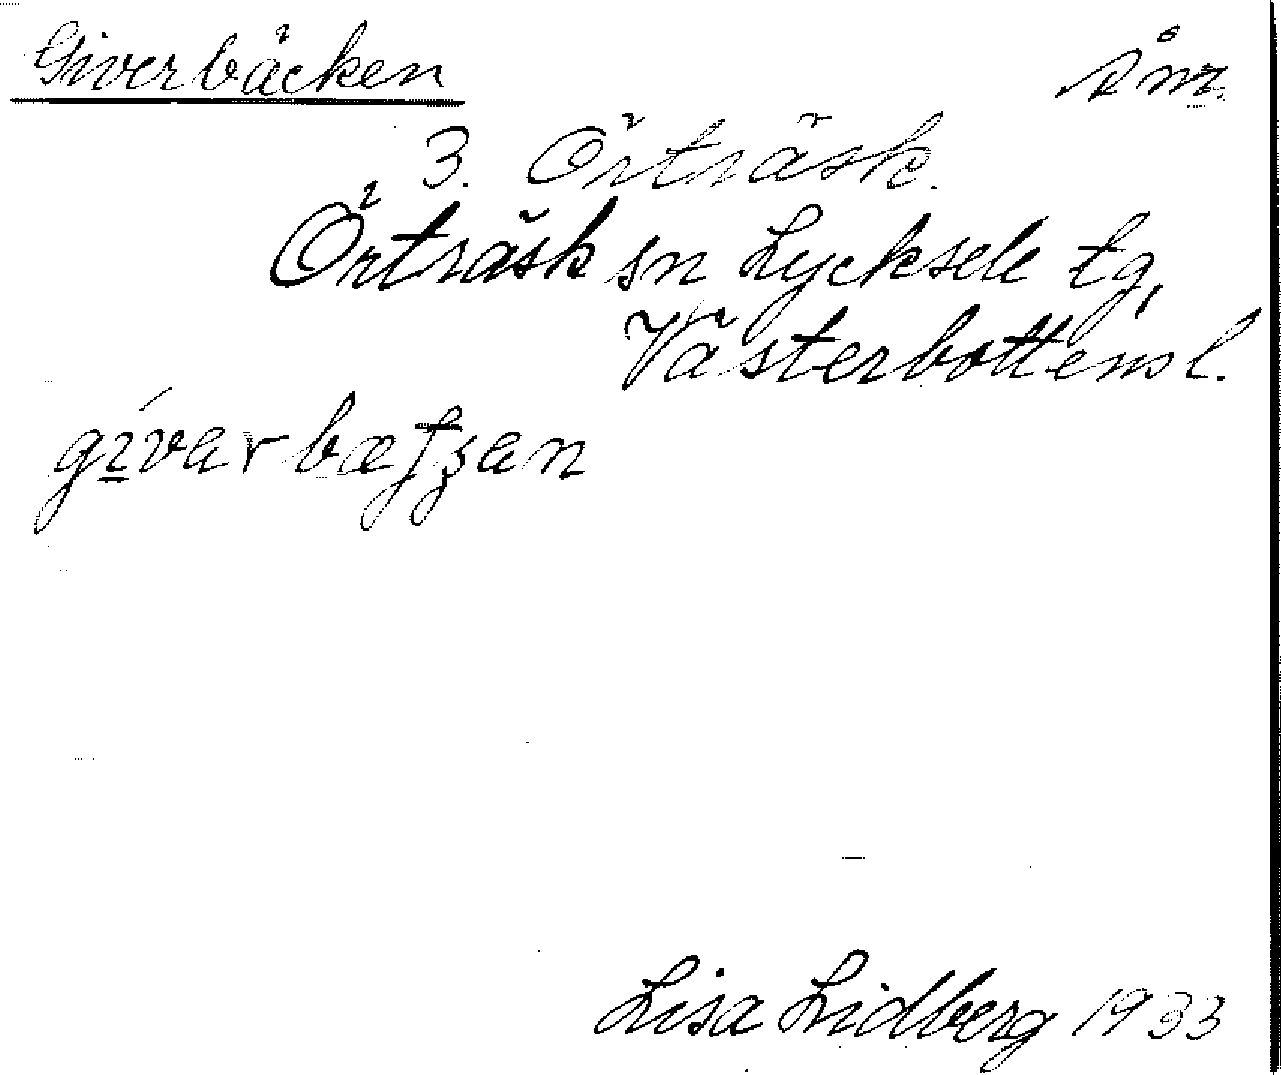 Giverbäcken
3. Örträsk.
Örträsk sn Lycksele tg,
Västerbottens l.
Lisa Lidberg 1933